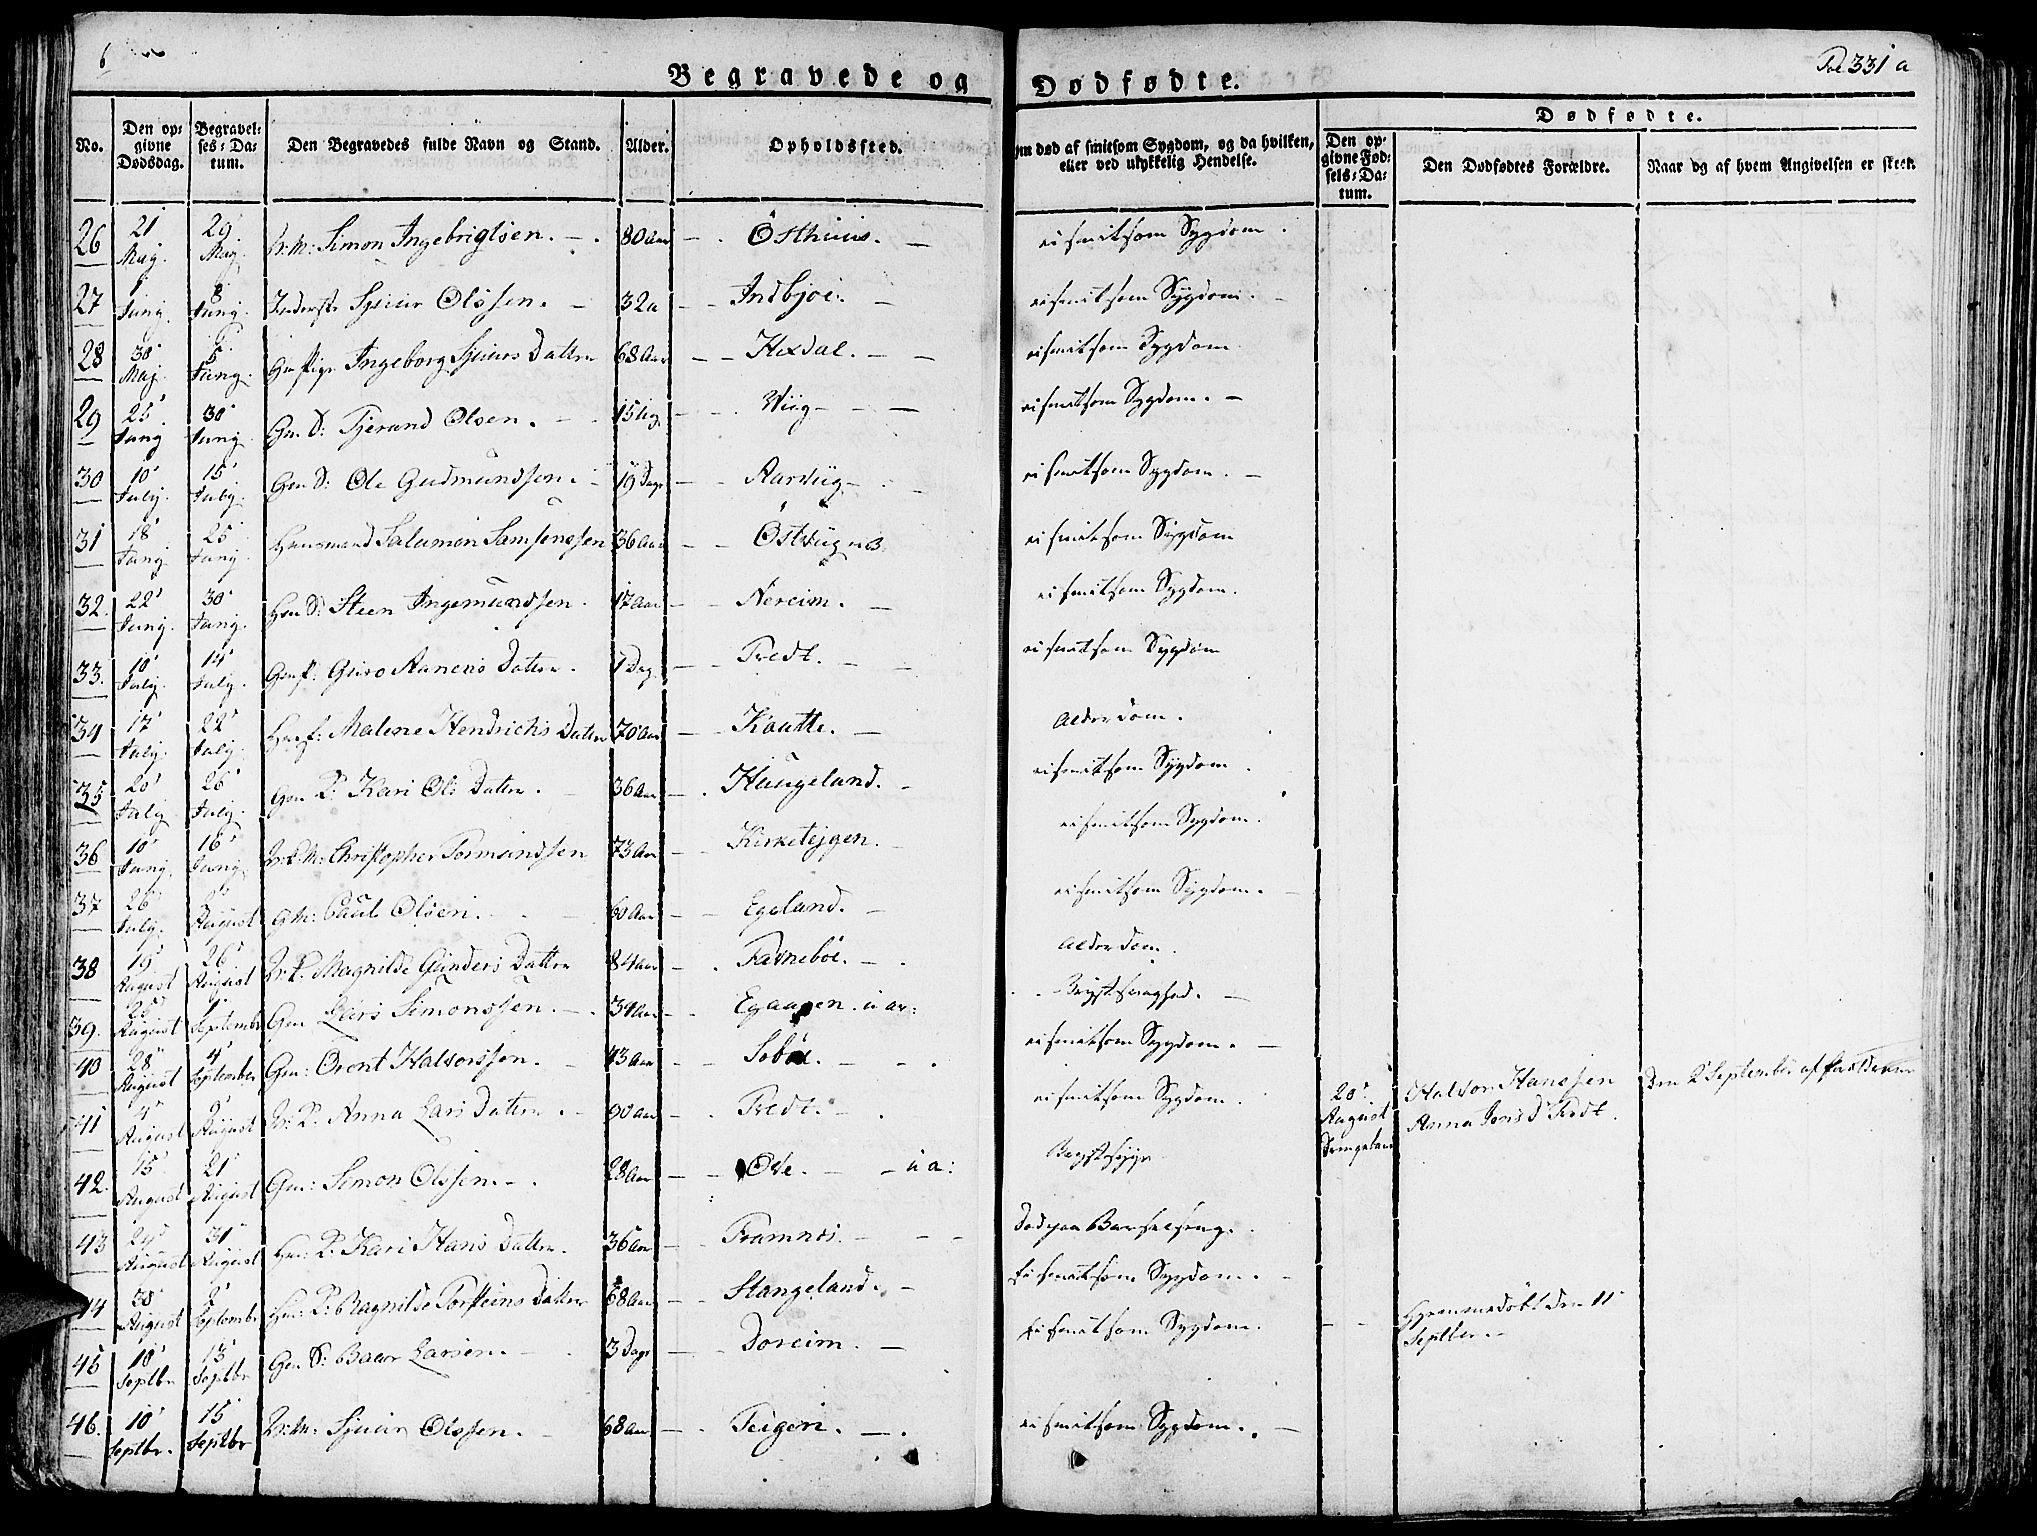 6
Fol 331 a
Begravede og Dødfødte.
No. Den opgivne Dødsdag. Begravelses-Datum. Den Begravedes fulde Navn og Stand. Alder. Opholdssted. om død af smitsom Sygdom, og da hvilken, eller ved ulykkelig Hendelse. Dødfødte. Den opgivne Fødsels-Datum. Den Dødfødtes Forældre. Naar og af hvem Angivelsen er skeet.
26 21 Maj. 29 Maj. Simon Ingebrigtsen. 80 Aar Østhuus. ei smitsom Sygdom.
27 Juny. 8 Juny. Inderste Sjuur Olssen. 32 a Indbjoe. ei smitsom Sygdom.
28 30 Maj. 5 Juny. Gm. Pige Ingeborg Sjuurs Datter 68 Aar Hexdal. ei smitsom Sygdom
29 25 Juny 30 Juny. Gm. D: Tjerand Olsen. 15 Ug. Viig ei smitsom Sygdom.
30 10 July. 15 July. Gm S: Ole Gudmundssen 19 Dage Aarviig ei smitsom Sygdom.
31 18 Juny 25 Juny. Huusmand Salamon Samsonssen 36 Aar Østviig ei smitsom Sygdom
32. 22 Juny. 30 Juny. S: Steen Ingemundssen. 17 Aar Nereim. ei smitsom Sygdom.
33. 10 July. 14 July. Guro Aanens Datter. 1 Dag. Tredt. ei smitsom Sygdom
34 17 July. 22 July. Malene Hendrichs Datter 70 Aar Kaatte. Alderdom.
35 20 July 26 July. Gm P: Kari Ols Datter. 36 Aar Haugeland. ei smitsom Sygdom
36 10 Juny. 16 Juny. Christopher Tormundssen 73 Aar Kirketejgen. ei smitsom Sygdom.
37 26 July. 2 August Gm: Paul Olsen. 60 Aar Egeland. ei smitsom Sygdom.
38 19 August 26 August Magnilde Gunders Datter 84 Aar Favneboe. Alderdom.
39. 25 August 1 September Gm Lars Simonssen. 34 Aar Egaagen. Brystsvaghed.
40 28 August 4 September Gm: Orent Halvorssen. 43 Aar Sobøe. ei smitsom Sygdom.
41 4 August 9 August P. Anna Lars Datter. 90 Aar Tredt. ei smitsom Sygdom. 20 August Halvor Hanssen Anna Jens D Tredt. Den 2 September af
42. 15 August 21 August Gm: Simon Olssen. 28 Aar Ose. Brystsyge
43 24 August 31 August P. Kari Hans Datter. 36 Aar Framnes. Død paa Barselseng.
44 30 August 9 September P: Magnilde Torsteins Datter 68 Aar Stangeland. ei smitsom Sygdom.
45 10 Septbr 13 Septbr Gm S: Baar Larsen. 3 Dage Doreim. ei smitsom Sygdom. Hjemmedøbt den 11 Septber.
46. 10 Septbr. 15 Septbr Sjuur Olssen. 68 Aar Teigen. ei smitsom Sygdom.